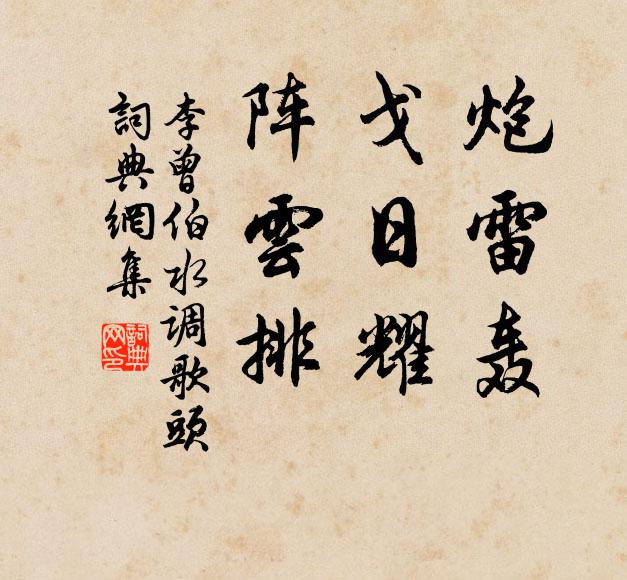 炮雷轰
戈日耀
阵雲排
李曾伯水调歌頭
詞典網集
詞典网印